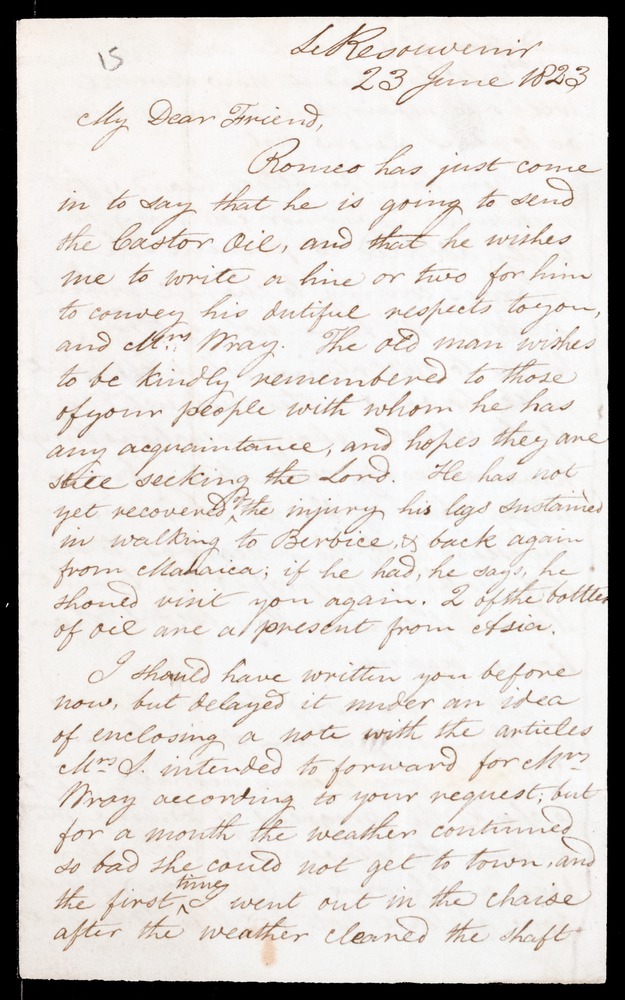 15
Le Resouvenir
23 June 1823
My Dear Friend,
Romeo has just come
in to say that he is going to send
the Castor Oil, and that he wishes
me to write a line or two for him
to convey his dutiful respects to you,
and Mrs Wray. The old man wishes
to be kindly remembered to those
of your people with whom he has
any acquaintance, and hopes they are
still seeking the Lord. He has not
yet recovered the injury his legs sustained
in walking to Berbice, & back again
from Mahaica; if he had, he says, he
should visit you again. 2 of the bottles
of oil are a present from Asia.
I should have written you before
now, but delayed it under an idea
of enclosing a note with the articles
Mrs S. intended to forward for Mrs
Wray according to your request; but
for a month the weather continued
so bad she could not get to town, and
the first time I went out in the chaise
after the weather cleared the shaft